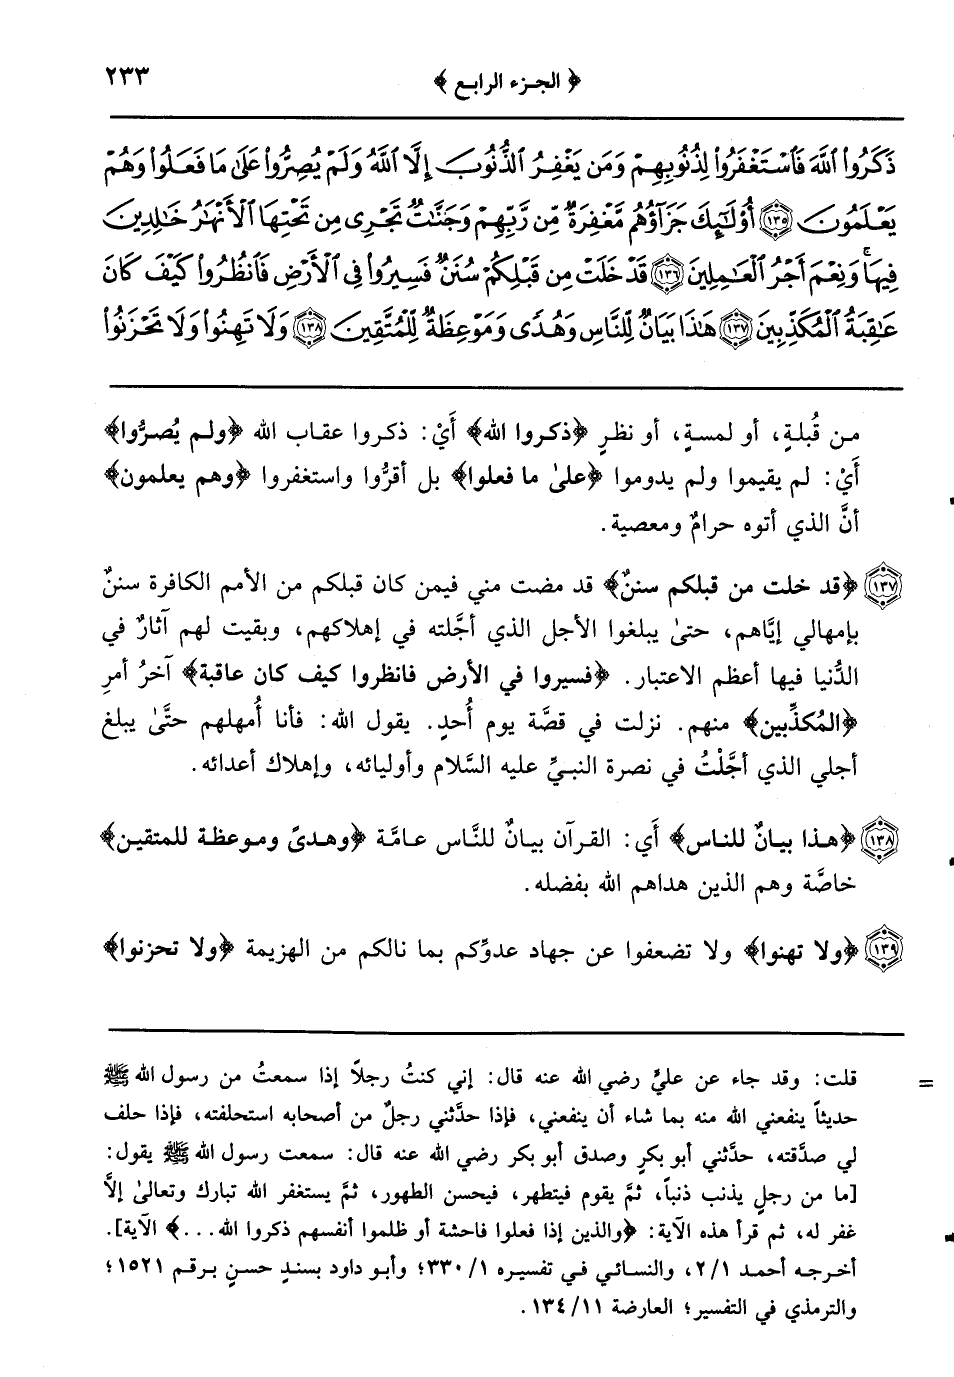 ٢٣٣
﴿ الجزء الرابع ﴾
ذَكَرُوا۟ ٱللَّهَ فَٱسْتَغْفَرُوا۟ لِذُنُوبِهِمْ وَمَن يَغْفِرُ ٱلذُّنُوبَ إِلَّا ٱللَّهُ وَلَمْ يُصِرُّوا۟ عَلَىٰ مَا فَعَلُوا۟ وَهُمْ
يَعْلَمُونَ ١٣٥ أُو۟لَٰٓئِكَ جَزَآؤُهُم مَّغْفِرَةٌ مِّن رَّبِّهِمْ وَجَنَّٰتٌ تَجْرِى مِن تَحْتِهَا ٱلْأَنْهَٰرُ خَٰلِدِينَ
فِيهَا ۚ وَنِعْمَ أَجْرُ ٱلْعَٰمِلِينَ ١٣٦ قَدْ خَلَتْ مِن قَبْلِكُمْ سُنَنٌ فَسِيرُوا۟ فِى ٱلْأَرْضِ فَٱنظُرُوا۟ كَيْفَ كَانَ
عَٰقِبَةُ ٱلْمُكَذِّبِينَ ١٣٧ هَٰذَا بَيَانٌ لِّلنَّاسِ وَهُدًى وَمَوْعِظَةٌ لِّلْمُتَّقِينَ ١٣٨ وَلَا تَهِنُوا۟ وَلَا تَحْزَنُوا۟
من قُبلةٍ، أو لمسةٍ، أو نظرٍ ﴿ذكروا الله﴾ أَيْ: ذكروا عقاب الله ﴿ولم يُصرُّوا﴾
أَيْ: لم يقيموا ولم يدوموا ﴿علىٰ ما فعلوا﴾ بل أقرُّوا واستغفروا ﴿وهم يعلمون﴾
أنَّ الذي أتوه حرامٌ ومعصية.
١٣٧ ﴿قد خلت من قبلكم سننٌ﴾ قد مضت مني فيمن كان قبلكم من الأمم الكافرة سننٌ
بإمهالي إيَّاهم، حتىٰ يبلغوا الأجل الذي أجَّلته في إهلاكهم، وبقيت لهم آثارٌ في
الدُّنيا فيها أعظم الاعتبار. ﴿فسيروا في الأرض فانظروا كيف كان عاقبة﴾ آخرُ أمرِ
﴿المُكذِّبين﴾ منهم. نزلت في قصَّة يوم أُحدٍ. يقول الله: فأنا أُمهلهم حتَّىٰ يبلغ
أجلي الذي أجَّلْتُ في نصرة النبيِّ عليه السَّلام وأوليائه، وإهلاك أعدائه.
١٣٨ ﴿هذا بيانٌ للناس﴾ أَي: القرآن بيانٌ للنَّاس عامَّة ﴿وهدىً وموعظة للمتقين﴾
خاصَّة وهم الذين هداهم الله بفضله.
١٣٩ ﴿ولا تهنوا﴾ ولا تضعفوا عن جهاد عدوِّكم بما نالكم من الهزيمة ﴿ولا تحزنوا﴾
= قلت: وقد جاء عن عليٍّ رضي الله عنه قال: إني كنتُ رجلاً إذا سمعتُ من رسول الله ﷺ
حديثاً ينفعني الله منه بما شاء أن ينفعني، فإذا حدَّثني رجلٌ من أصحابه استحلفته، فإذا حلف
لي صدَّقته، حدَّثني أبو بكرٍ وصدق أبو بكر رضي الله عنه قال: سمعت رسول الله ﷺ يقول:
[ما من رجلٍ يذنب ذنباً، ثمَّ يقوم فيتطهر، فيحسن الطهور، ثمَّ يستغفر الله تبارك وتعالىٰ إلاَّ
غفر له، ثم قرأ هذه الآية: ﴿والذين إذا فعلوا فاحشة أو ظلموا أنفسهم ذكروا الله...﴾ الآية].
أخرجه أحمد ٢/١، والنسائي في تفسيره ٣٣٠/١؛ وأبو داود بسندٍ حسنٍ برقم ١٥٢١؛
والترمذي في التفسير؛ العارضة ١٣٤/١١.